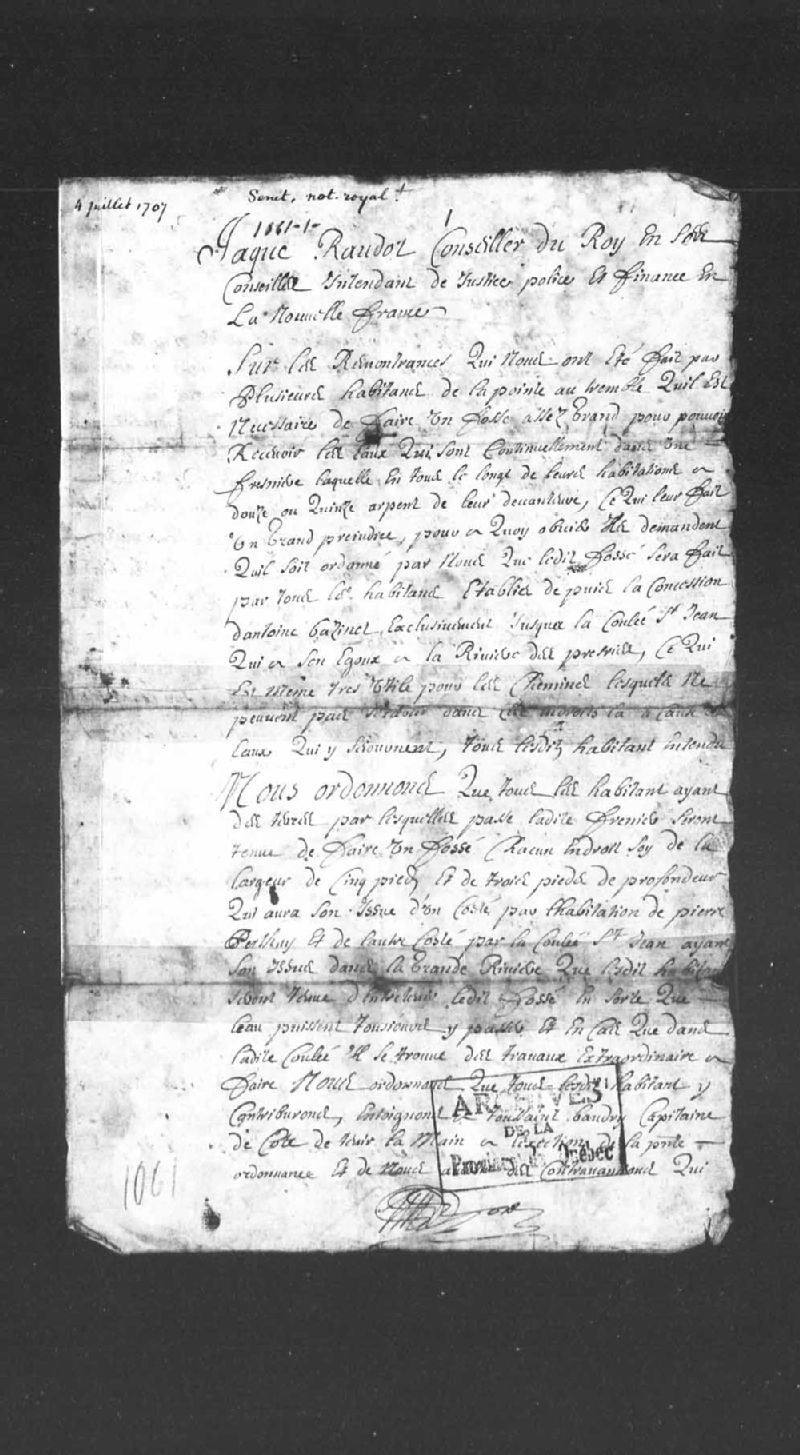 4 juillet 1707
Senet, not. royal
1061-1-
Jaque Raudot Conseiller du Roy En Ses
Conseille Intendant de Justice police Et finance En
La Nouvelle france
Sur les Remontrances Qui Nous ont Eté fait par
Plusieurs habitans de la pointe au tremble Quil Est
Necessaire de faire Un fossé assez Grand pour pouvoir
Recevoir les Eaux Qui sont Continuellement dans Une
freniere laquelle En tous le long de leurs habitations a
douze ou Quinze arpent de leur devanture, Ce Qui leur fait
Un Grand preiudice, pour a Quoy obvier Ils demandent
Quil soit ordonné par Nous Que ledit fossé sera fait
par tous les habitans Etablies depuis la Concession
dantoine bazinet Exclusivement Jusqua la Coulée St Jean
Qui a son Egoux a la Riviere des presries, Ce Qui
Est meme tres Utile pour les Chemins lesquels Ne
peuvent pas dans Ces Endroits la a Caus des
Eaux Qui y seiournent, tous lesdit habitant Entendu
Nous ordonnons Que tous les habitant ayant
des terres par lesquelles passe ladite freniere seront
tenue de faire Un fossé Chacun Endroit soy de la
largeur de Cinq pieds Et de trois pieds de profondeur
Qui aura son Issue d'Un Costé par lhabitation de pierre
Et de lautre Costé par la Coulée St Jean ayant
son Issue dans la Grande Riviere Que lesdit habitans
seront tenue dEntretenir ledit fossé En sorte Que
leau puissent tousiours y passer Et En Cas Que dans
ladite Coulée Il se trouve des travaux Extraordinaire a
faire Nous ordonnons Que tous lesdit habitant y
Contriburons, Enioignons a toussaint baudry Capitaine
de Cote de tenir la Main a lexecution de la pnte
ordonnance Et de Nous des Contrevenans Qui
ARCHIVES
DE LA
Province de Québec
1061